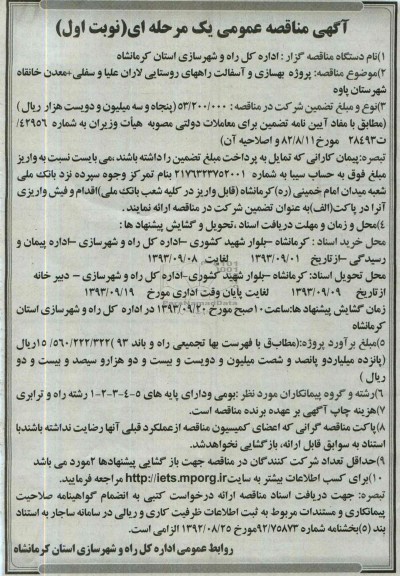 آگهی مناقصه عمومی یک مرحله ای(نوبت اول)
۱)نام دستگاه مناقصه گزار : اداره کل راه و شهرسازی استان کرمانشاه
۲)موضوع مناقصه: پروژه بهسازی و آسفالت راههای روستایی لاران علیا و سفلی+معدن خانقاه
شهرستان پاوه
۳)نوع و مبلغ تضمین شرکت در مناقصه : ۵۳/۲۰۰/۰۰۰ (پنجاه و سه میلیون و دویست هزار ریال )
(مطابق با مفاد آیین نامه تضمین برای معاملات دولتی مصوبه هیأت وزیران به شماره ۴۲۹۵۶/
ت۲۸۴۹۳ مورخ۸۲/۸/۱۱ و اصلاحیه آن)
تبصره:پیمان کارانی که تمایل به پرداخت مبلغ تضمین را داشته باشند،می بایست نسبت به واریز
مبلغ فوق به حساب سیبا به شماره ۲۱۷۶۳۲۳۷۵۲۰۰۱ بنام تمرکز وجوه سپرده نزد بانک ملی
شعبه میدان امام خمینی (ره)کرمانشاه (قابل واریز در کلیه شعب بانک ملی)اقدام و فیش واریزی
آنرا در پاکت(الف)به عنوان تضمین شرکت در مناقصه ارائه نمایند .
۴)محل و زمان و مهلت دریافت اسناد ،تحویل و گشایش پیشنهاد ها :
محل خرید اسناد : کرمانشاه –بلوار شهید کشوری –اداره کل راه و شهرسازی –اداره پیمان و
رسیدگی –ازتاریخ ۱۳۹۳/۰۹/۰۱ لغایت ۱۳۹۳/۰۹/۰۸
محل تحویل اسناد: کرمانشاه –بلوار شهید کشوری–اداره کل راه و شهرسازی – دبیر خانه
ازتاریخ ۱۳۹۳/۰۹/۰۹ لغایت پایان وقت اداری مورخ ۱۳۹۳/۰۹/۱۹
زمان گشایش پیشنهاد ها:ساعت۱۰صبح مورخ ۱۳۹۳/۰۹/۲۰ در اداره کل راه و شهرسازی استان
کرمانشاه
۵)مبلغ برآورد پروژه:(مطابق با فهرست بها تجمیعی راه و باند ۹۳ )۵۶۰/۲۲۲/۳۲۲/ ۱۵ریال
(پانزده میلیاردو پانصد و شصت میلیون و دویست و بیست و دو هزارو سیصد و بیست و دو
ریال )
۶)رشته و گروه پیمانکاران مورد نظر :بومی ودارای پایه های ۵-۴-۳-۲-۱ رشته راه و ترابری
۷)هزینه چاپ آگهی بر عهده برنده مناقصه است.
۸)پاکت مناقصه گرانی که اعضای کمیسیون مناقصه ازعملکرد قبلی آنها رضایت نداشته باشندبا
استناد به سوابق قابل ارائه، بازگشایی نخواهدشد.
۹)حداقل تعداد شرکت کنندگان در مناقصه جهت باز گشایی پیشنهادها ۲مورد می باشد
۱۰)برای کسب اطلاعات بیشتر به سایت http://iets.mporg.ir مراجعه فرمایید.
تبصره: جهت دریافت اسناد مناقصه ارائه درخواست کتبی به انضمام گواهینامه صلاحیت
پیمانکاری و مستندات مربوط به ثبت اطلاعات ظرفیت کاری و ریالی در سامانه ساجار به استناد
بند (۵)بخشنامه شماره ۹۲/۷۵۸۷۳مورخ ۱۳۹۲/۰۸/۲۵ الزامی است.
روابط عمومی اداره کل راه و شهرسازی استان کرمانشاه